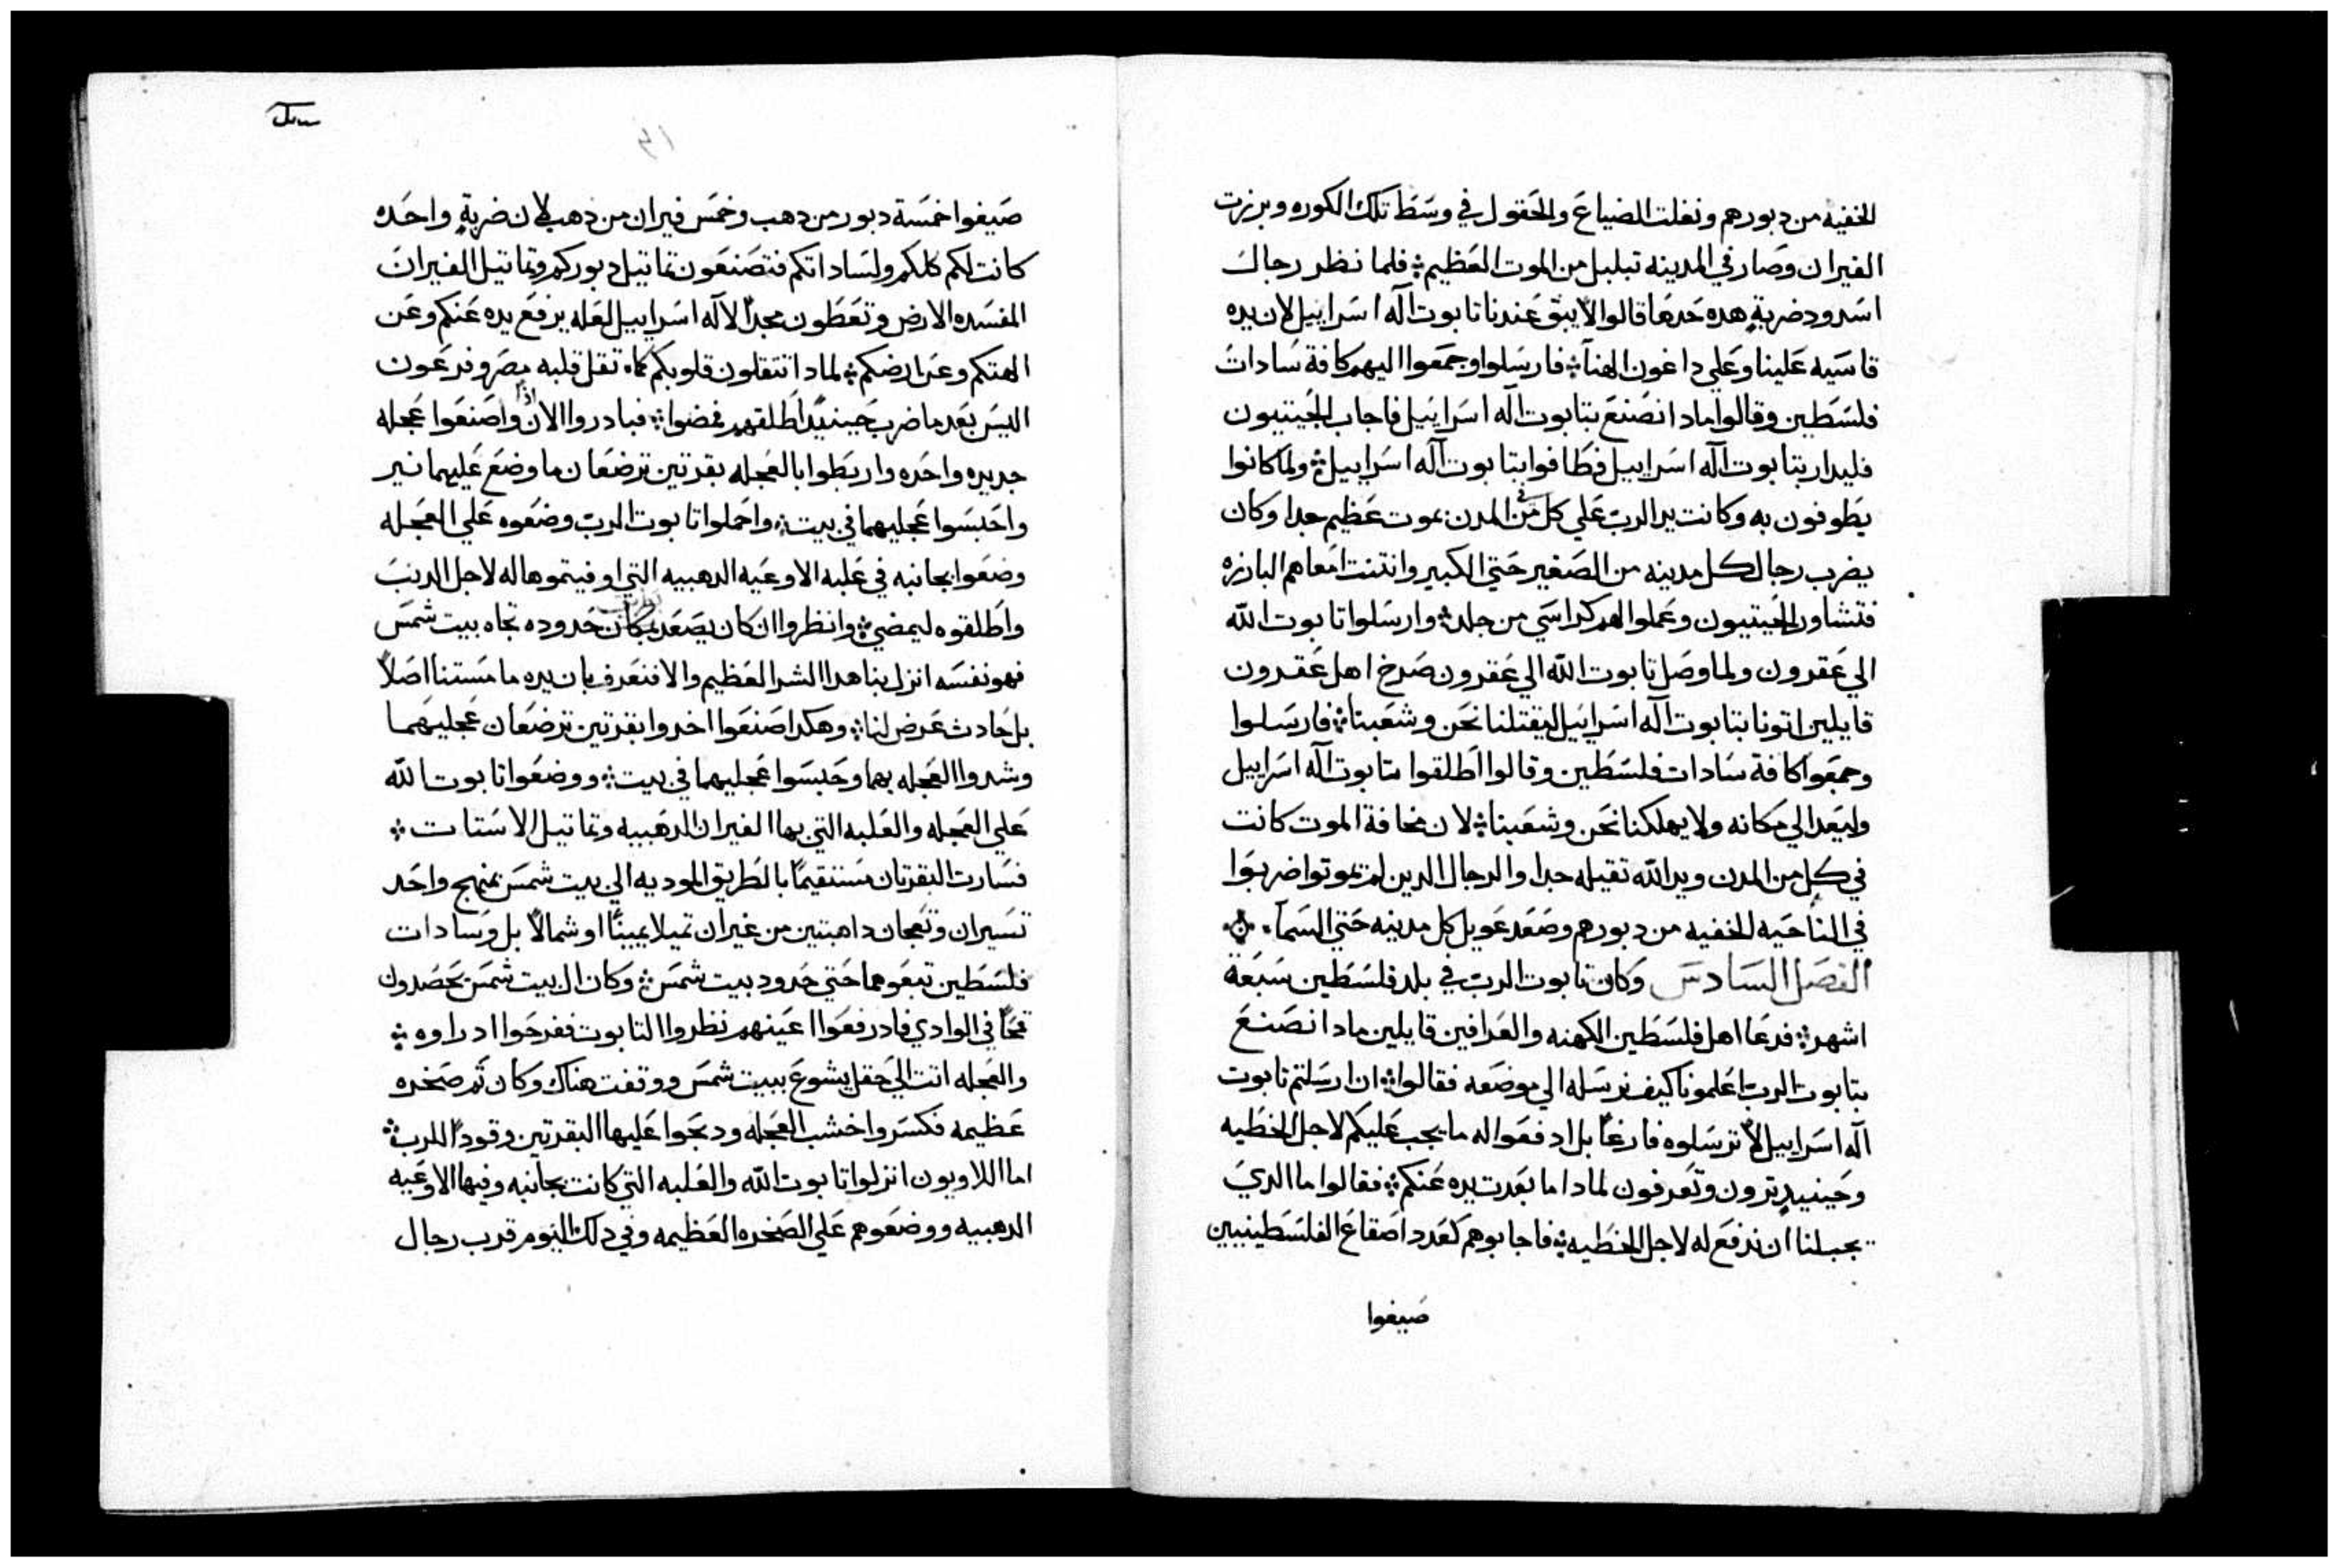 الخفيه من دبورهم ونغلت الضياعَ والحَقول في وسَطَ تلك الكوره وبرزت
الفيران وصَار في المدينه تبلبل من الموت العَظيم ؛ فلما نظر رجال
اسَدود ضربةٍ هده حَدهَا قالوا لا يبقَ عَندنا تابوت آله اسَراييل لان يده
قاسَيه عَلينا وعَلي داغون الهنآ ؛ فارسَلوا وجمَعوا اليهم كافة سَادات
فلسَطين وقالوا مادا نصَنعَ بتابوت آله اسَراييل فاجاب الجَيتيون
فليدار بتابوت آله اسَراييل فطَافوا بتابوت آله اسَراييل ؛ ولما كانوا
يطَوفون به وكانت يد الربّ عَلي كل من المدن بموت عَظيم جدا وكان
يضرب رجال كل مدينه من الصَغير حَتي الكبير وانتنت امَعاهم البارزه
فتشاور الجَيتيون وعَملوا لهم كراسَي من جلد ؛ وارسَلوا تابوت الله
الي عَقرون ولما وصَل تابوت الله الي عَقرون صَرخ اهل عَقرون
قايلين اتونا بتابوت آله اسَراييل ليقتلنا نحَن وشعَبنا ؛ فارسَلوا
وجمعَوا كافة سَادات فلسَطين وقالوا اطَلقوا تابوت آله اسَراييل
وليعَد الي مكانه ولا يهلكنا نحَن وشعَبنا ؛ لان مخافة الموت كانت
في كل من المدن ويد الله تقيله جدا والرجال الدين لم يموتوا ضربوَا
في الناحَيه الخفيه من دبورهم وصَعَد عَويل كل مدينه حَتي السَمآ .
الفصَل السَادسَ وكان تابوت الربّ في بلد فلسَطين سَبعَة
اشهر ؛ فدعَا اهل فلسَطين الكهنه والعَرافين قايلين مادا نصَنعَ
بتابوت الربّ اعَلمونا كيف نرسَله الي موضعَه فقالوا ؛ ان ارسَلتم تابوت
آله اسَراييل لا ترسَلوه فارغاً بل ادفعَوا له ما يجب عَليكم لاجل الخطَيه
وحَينيدٍ ترون وتعَرفون لمادا ما بعَدت يده عَنكم ؛ فقالوا ما الديَ
يجب لنا ان ندفعَ له لاجل الخطَيه ؛ فاجابوهم كعَدد اصَقاعَ الفلسَطينيين
صَيغوا
صَيغوا خمسَة دبور من دهب وخمسَ فيران من دهب لان ضربةٍ واحَده
كانت لكم كلكم ولسَاداتكم فتصَنعَون تماتيل دبوركم وتماتيل الفيران
المفسَده الارض وتعَطَون مجداً لاله اسَراييل لعَله يرفعَ يده عَنكم وعَن
الهتكم وعَن ارضكم ؛ لمادا تتقلون قلوبكم كما تقل قلبه مصَر وفرعَون
اليسَ بعَد ما ضرب حَينيدٍ اطَلقهم فمضوا ؛ فبادروا الان اذاً واصَنعَوا عَجله
جديده واحَده واربطَوا بالعَجله بقرتين ترضعَان ما وضعَ عَليهما نير
واحَبسَوا عَجليهما في بيت ؛ واحَملوا تابوت الربّ وضعَوه عَلي العَجله
وضعَوا بجانبه في عَلبه الاوعَيه الدهبيه التي اوفيتموها له لاجل الدنبَ
واطَلقوه ليمضي ؛ وانظروا ان كان يصَعَد حَدوده تجاه بيت شمسَ
فهو نفسَه انزل بنا هدا الشر العَظيم والا فنعَرف بان يده ما مسَتنا اصَلاً
بل حَادث عَرض لنا ؛ وهكدا صَنعَوا اخدوا بقرتين ترضعَان عَجليهما
وشدوا العَجله بهما وحَبسَوا عَجليهما في بيت ؛ ووضعَوا تابوت الله
عَلي العَجله والعَلبه التي بها الفيران الدهَبيه وتماتيل الاسَتات ؛
فسَارت البقرتان مسَتقيماً بالطَريق الموديه الي بيت شمسَ بمنهج واحَد
تسَيران وتعَجان داهبتين من غير ان تميلا يميناً او شمالاً بل وسَادات
فلسَطين تبعَوهما حَتي حَدود بيت شمسَ ؛ وكان ال بيت شمسَ يحَصَدون
قمحَاً في الوادي فاد رفعَوا اعَينهم نظروا التابوت ففرحَوا اد راوه ؛
والعَجله اتت الي حَقل يشوعَ ببيت شمسَ ووقفت هناك وكان تم صَخره
عَظيمه فكسَروا خشب العَجله ودبحَوا عَليها البقرتين وقوداً للربّ ؛
اما اللاويون انزلوا تابوت الله والعَلبه التي كانت بجانبه وفيها الاوعَيه
الدهبيه ووضعَوهم عَلي الصَخره العَظيمه وفي دلك اليوم قرب رجال